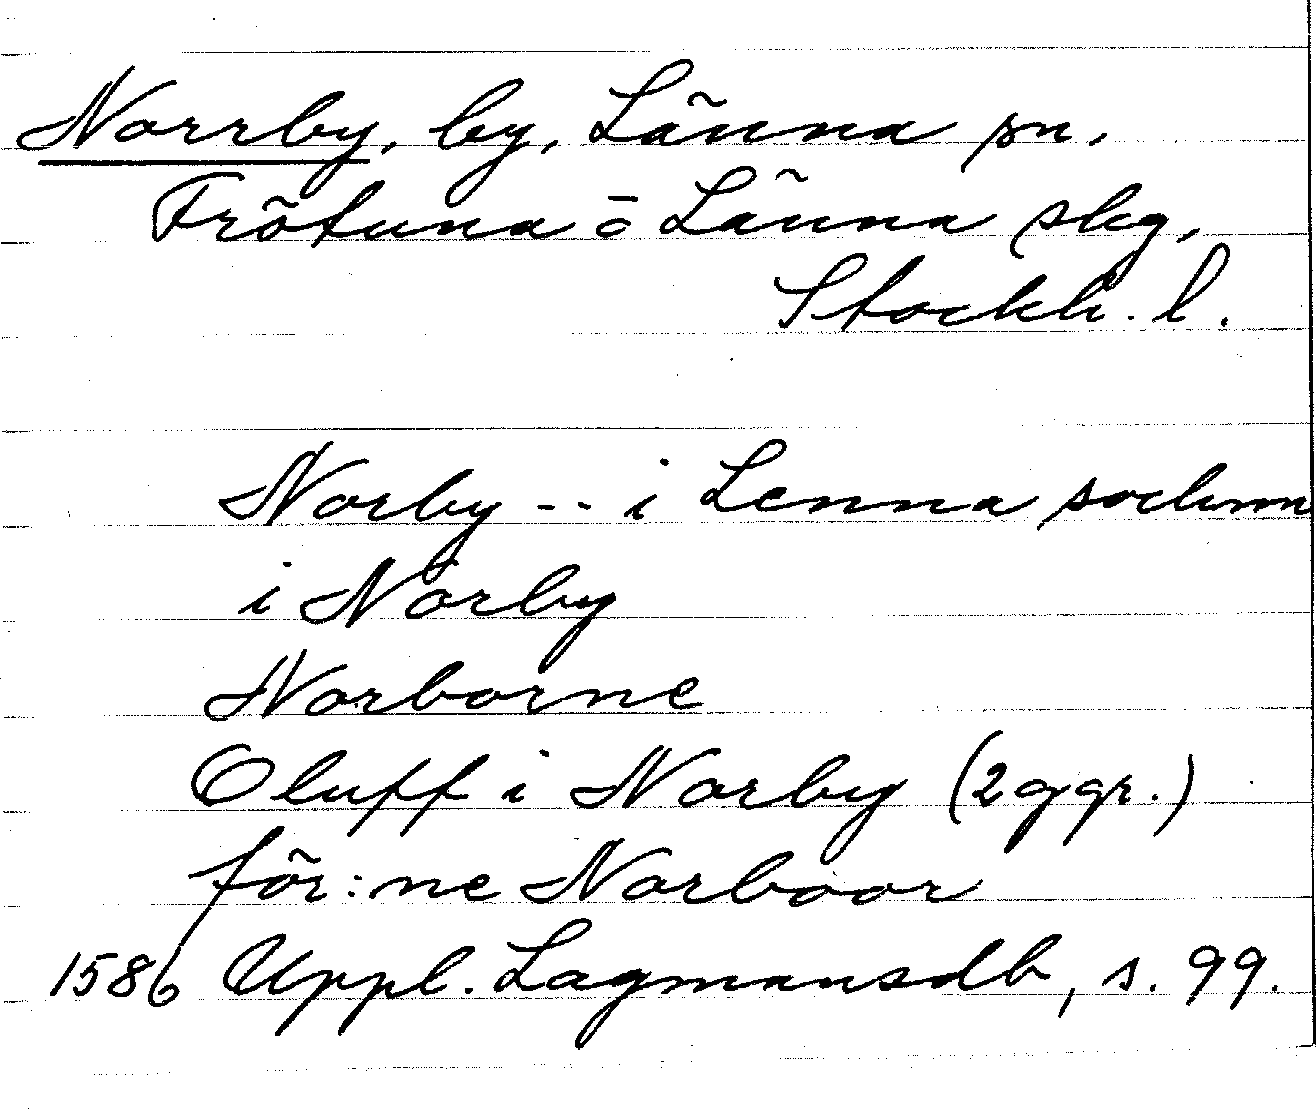 Norrby, by, Länna sn,
Frötuna o Länna skg,
Stockh. l.
Norby -- i Lenna sochnn
i Norby
Norborne
Oluff i Norby (2 ggr.)
för:ne Norboor
1586 Uppl. Lagmansdb, s. 99.